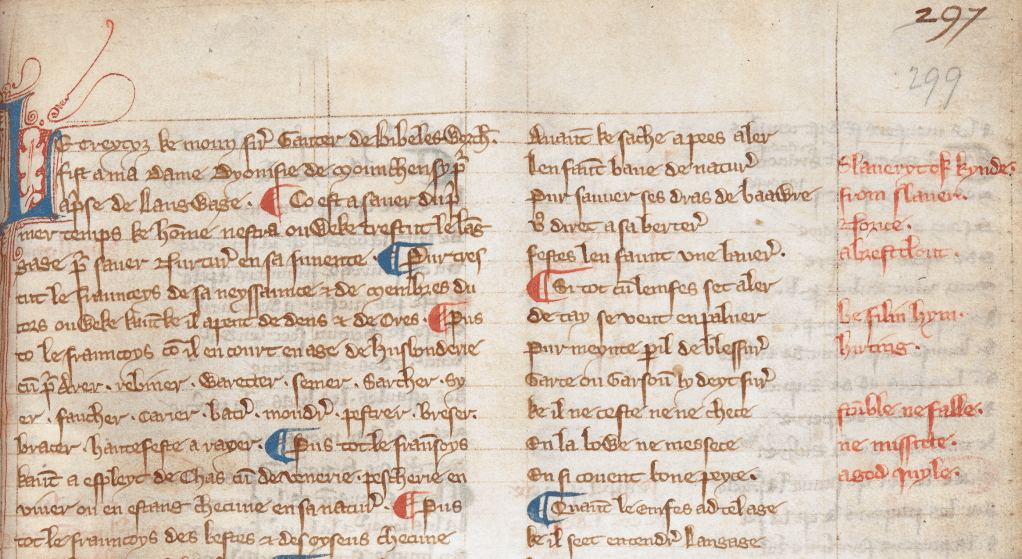 297
299
Le treytyz ke moun sire Gauter de bibelesworth.
fist a ma dame Dyonisie de mounchensy pur
lapse de langwage. ¶ Co est a saver du pri
mer temps ke home nestra ouweke trestut le lan
gage pur saver nurture en sa juvente. ¶ Pur tres
tut le fraunceys de sa neyssaunce & de membres du
cors ouweke kaunt ke il apent de dens & de ores. ¶ Pus
to le francoys com il en court en age de husbonderie
cum pur arer. rebiner. Waretter. semer. Sarcher. sy
er. faucher. carier. batre. moudre. pestrer. breser.
bracer. hautefeste arayer. ¶ Pus tot le fraunsoys
kaunt a espleyt de chas cum de venerie. pescherie en
viver ou en estang checune en sa nature. ¶ Pus
tot le fraunceys des bestes & des oyseus checune
Avaunt ke sache apres aler
len faunt bave de nature
Pur sauver ses dras de baavure
vous diret a sa bercere
Festes len faunt une bavere.
¶ Et tot cum lemfes set aler
de tay se veut en paluer
Pur meynte peril de blessure
Garce ou Garsoun ly deyt sure
ke il ne ceste ne ne chece
En la lowe ne messece
En si covent bone peyce.
¶ Quant le emfes ad tel age
ke il seet entendre langage
Slaveryt of kynde.
from slaver.
norice.
a brestclout.
befilin hym.
hirting.
stoble ne falle.
ne missitte.
a god quyle.